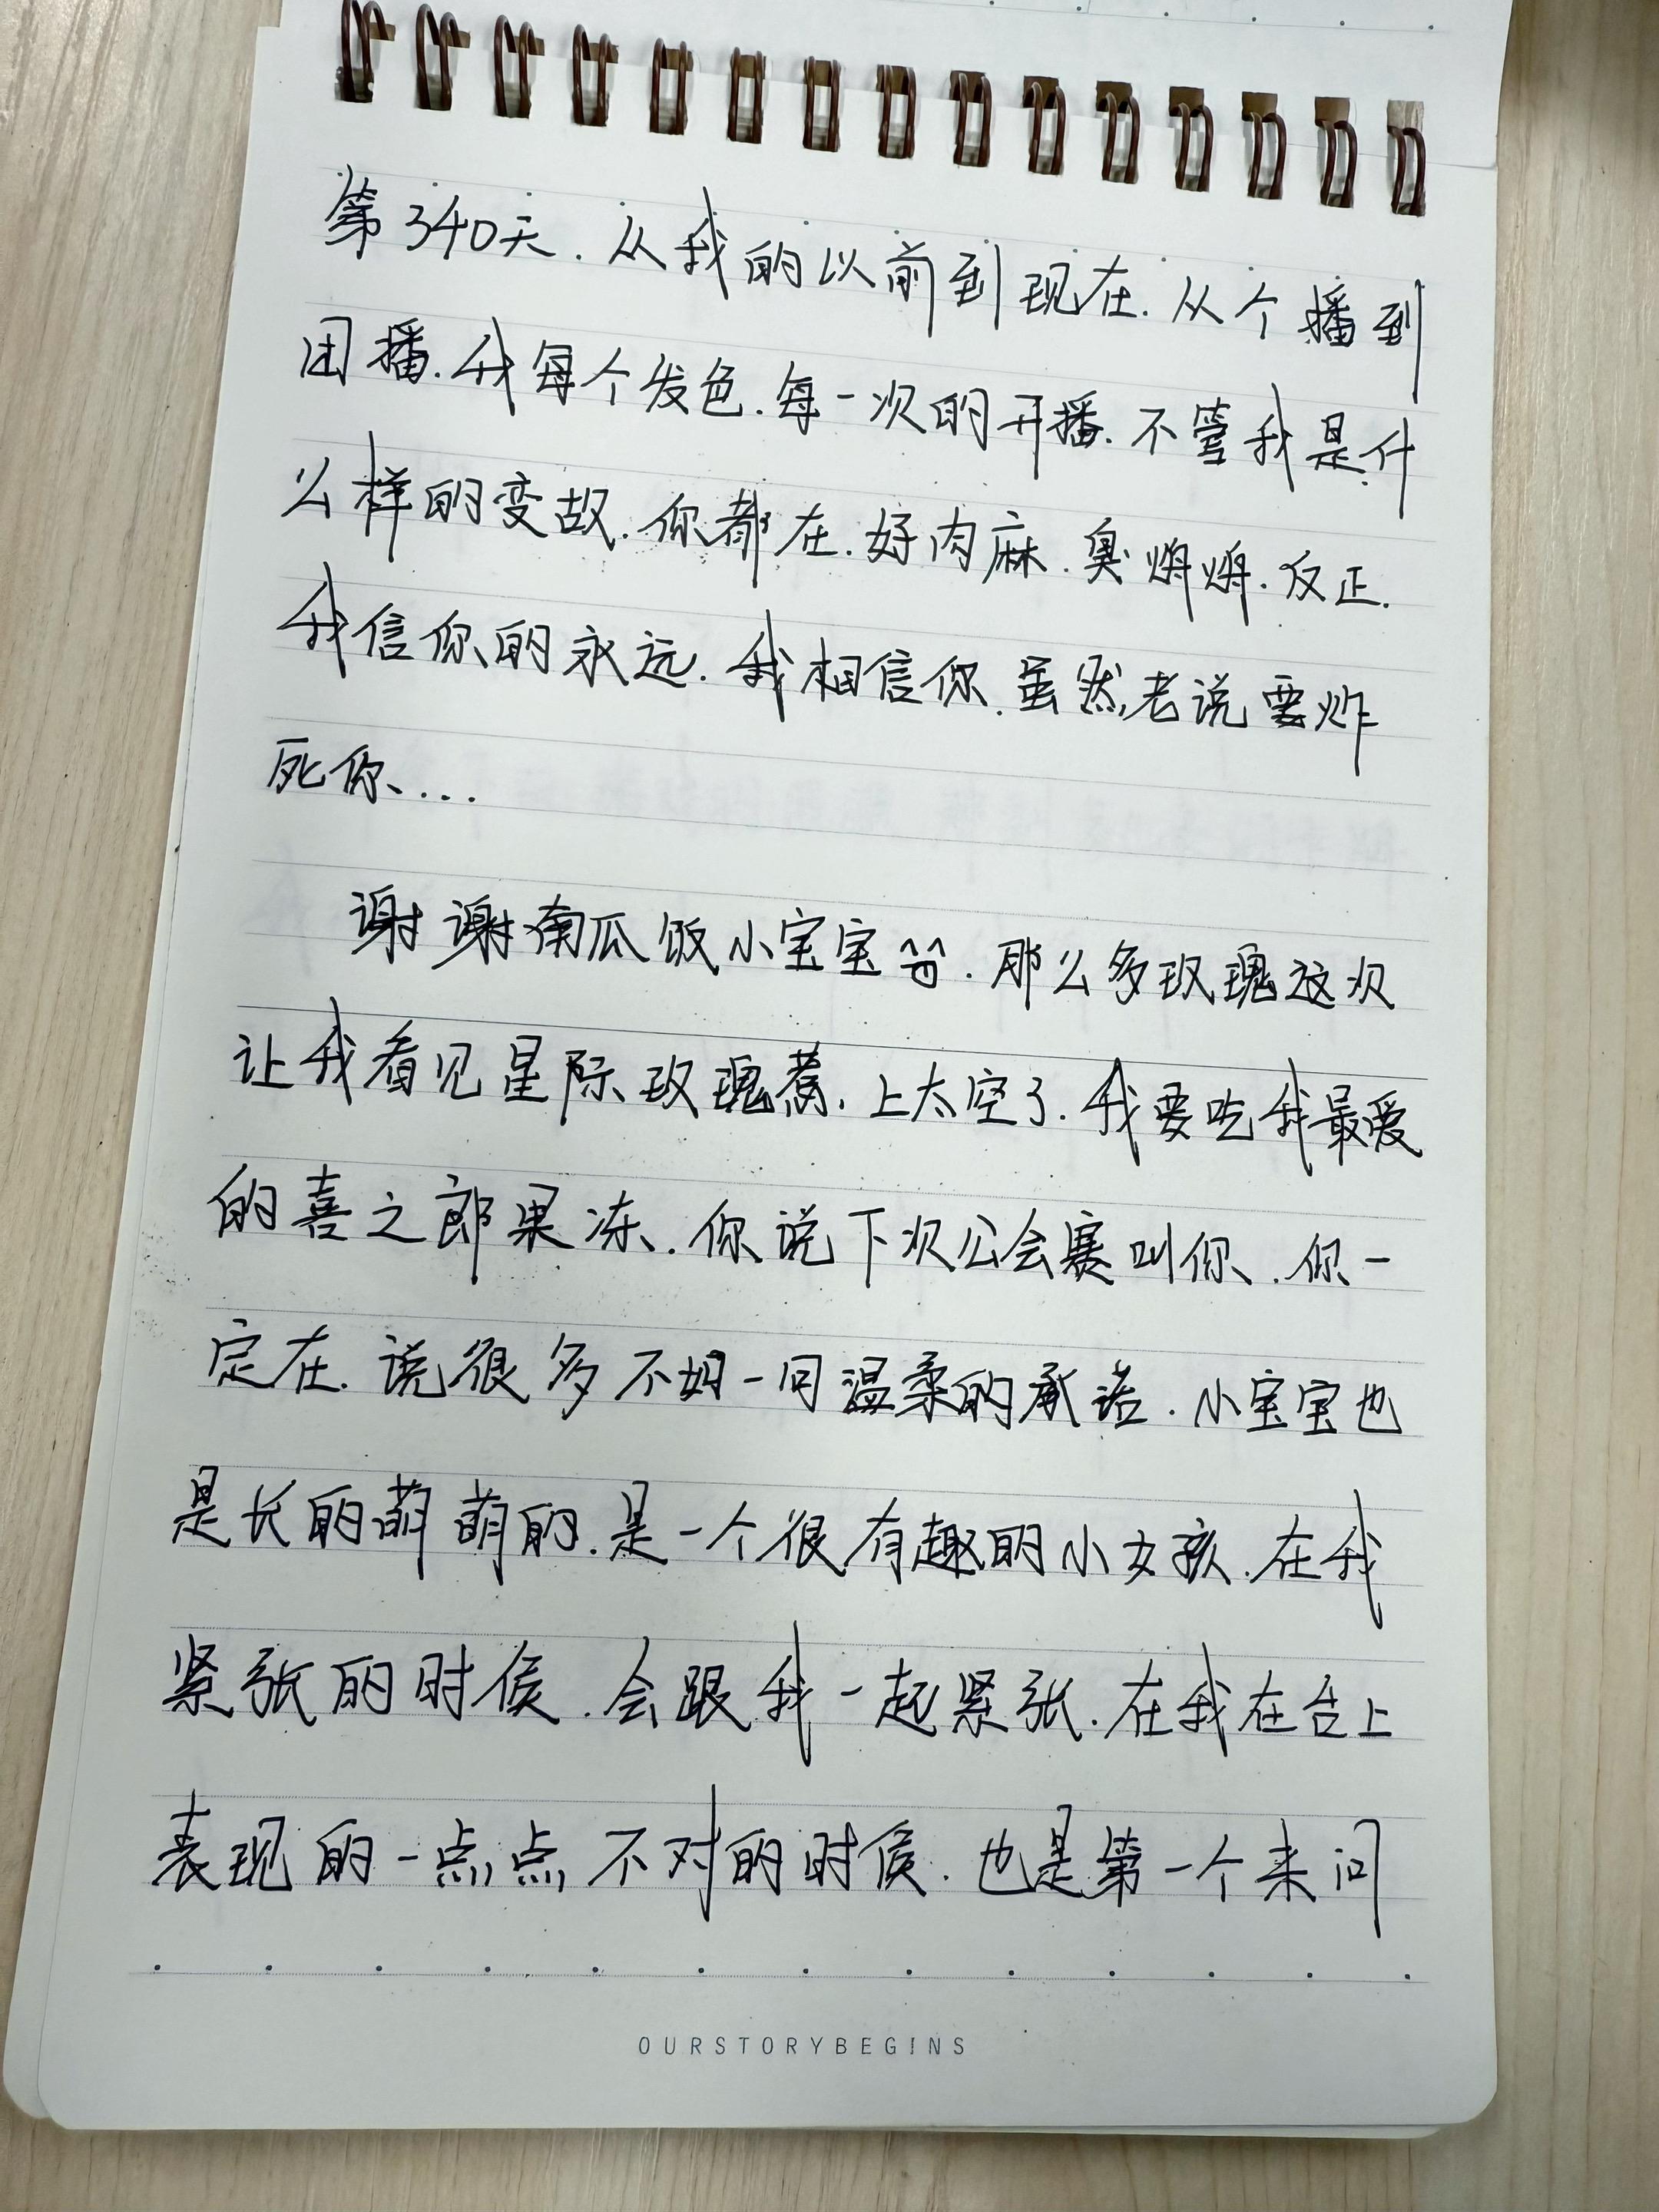 第340天.从我的以前到现在.从个播到
团播.我每个发色.每一次的开播.不管我是什
么样的变故.你都在.好肉麻.臭烘烘.反正.
我信你的永远.我相信你.虽然老说要炸
死你....
谢谢南瓜饭小宝宝.那么多玫瑰这次
让我看见星际玫瑰.上太空了.我要吃我最爱
的喜之郎果冻.你说下次公会赛叫你.你一
定在.说很多不如一句温柔的承诺.小宝宝也
是长的萌萌的.是一个很有趣的小女孩.在我
紧张的时侯.会跟我一起紧张.在我在台上
表现的一点点不对的时侯.也是第一个来问
OURSTORYBEGINS